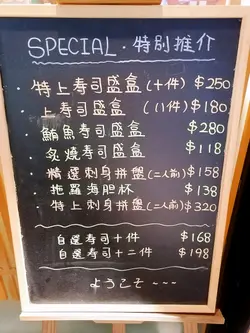 SPECIAL．特別推介
．特上寿司盛盒(十件) $250
．上寿司盛盒(八件) $180
．鮪魚寿司盛盒 $280
．炙燒寿司盛盒 $118
．精選刺身拼盤(二人前) $158
．拖羅海胆杯 $138
．特上刺身拼盤(二人前) $320
自選寿司十件 $168
自選寿司十二件 $198
ようこそ ~~~